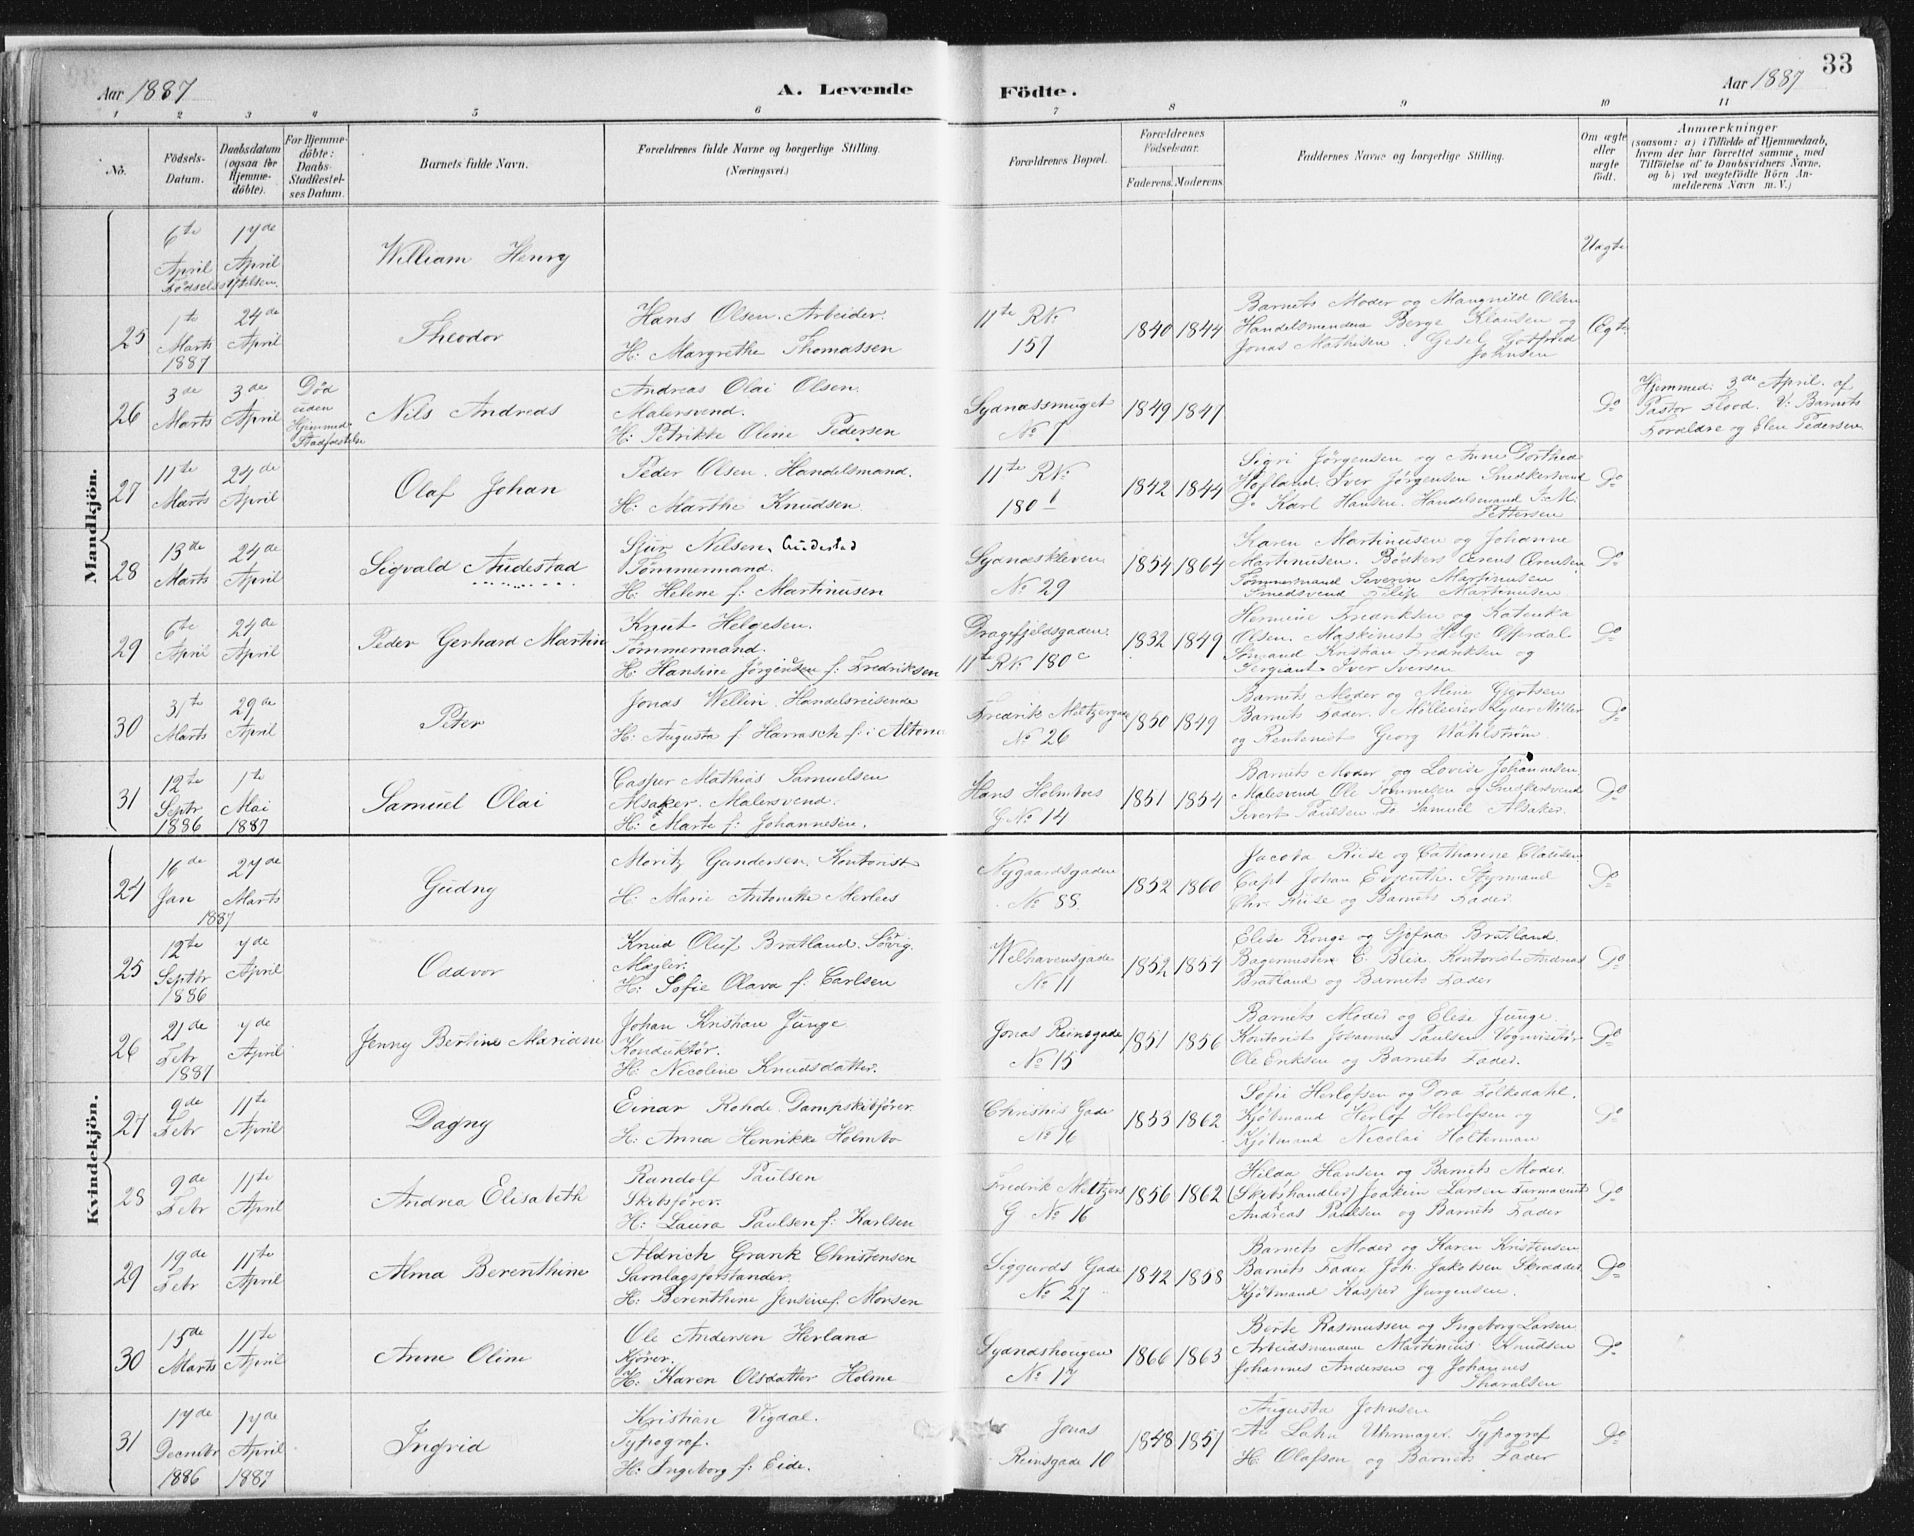 Aar 1887
A. Levende Födte.
Aar 1887
33
1 2 3 4 5 6 7 8 9 10 11
No.
Födsels-Datum.
Daabsdatum (ogsaa for Hjemmedöbte).
For Hjemmedöbte: Daabs-Stadfæstelses Datum.
Barnets fulde Navn.
Forældrenes fulde Navne og borgerlige Stilling.
(Næringsvei.)
Forældrenes Bopæl.
Forældrenes Födselsaar.
Faderens. Moderens.
Faddernes Navne og borgerlige Stilling.
Om ægte eller uægte födt.
Anmærkninger
(saasom: a) i Tilfælde af Hjemmedaab, hvem der har forrettet samme, med Tilföielse af to Daabsvidners Navne, og b) ved uægtefödte Börn Anmelderens Navn m. V.)
Mandkjön.
6te April 17de April William Henry Uægte
Födsels
25 1te Marts 1887 24de April Theodor
Hans Olsen. Arbeider.
H: Margrethe Thomassen
11te RN: 157 1840 1844
Barnets Moder og Mangnild Olsen
Handelsmændene Berge Klausen og
Jonas Mathesen. Gesel Gotfried
Johnsen
Ægte
26 3de Marts 3de April Død uden Hjemmed. Stadfæstelse Nils Andreas
Andreas Olai Olsen.
Malersvend.
H: Petrikke Oline Pedersen
Sydnæssmuget No 7 1849 1847 Do
Hjemmed: 3de April. af
Pastor Flood. V: Barnets
Forældre og Elen Pedersen
27 11te Marts 24de April Olaf Johan
Peder Olsen. Handelsmand.
H: Marthe Knudsen
11te RN: 180 1842 1844
Sigri Jørgensen og Anne Dorthea
Hofland. Iver Jørgensen Snedkersvend
Do Karl Hansen. Handelsmand J. M.
Pettersen
Do
28 13de Marts 24de April Sigvald Audestad
Sjur Nilsen. Audestad
Tømmermand.
H: Helene f: Martinusen
Sydnæskleven No 29 1854 1864
Karen Martinusen og Johanne
Martinusen. Bødkers
Tømmermand Severin Martinusen
Smedsvend Filip Martinusen
Do
29 6te April 24de April Peder Gerhard Martin
Knut Helgesen.
Tømmermand.
H: Hansine Jørgensen f: Fredriksen
Dragefjeldsgaden. 11te RN: 180c 1832 1849
Hermine Fredriksen og Katinka
Olsen. Maskinist Helge Offerdal
Sømand Kristian Fredriksen og
Sergiant Iver Iversen
Do
30 31te Marts 29de April Peter
Jonas Wellin. Handelsreisende
H: Augusta f Harrasch f: i Altona
Fredrik Meltzergade No 26 1850 1849
Barnets Moder og Mine Gjertsen
Barnets Fader. Lyder Møller
og Rentenist Georg Wahlstrøm
Do
31 12te Septr 1886 1te Mai 1887 Samuel Olai
Casper Mathias Samuelsen
Alsaker. Malersvend.
H: Marte f: Johannesen.
Hans Holmboes G No 14 1851 1854
Barnets Moder og Lovise Johannesen
Malesvend Ole Tommesen og Snedkersvend
Sivert Paulsen Do Samuel Alsaker.
Do
Kvindekjön.
24 16de Jan 1887 27de Marts Gudny
Moritz Gundersen. Kontorist
H: Marie Antonette Merlees
Nygaardsgaden No 88. 1852 1860
Jacoba Riise og Catharine Clausen
Capt Johan Evjenth. Styrmand
Chr. Riise og Barnets Fader.
Do
25 12te Septbr 1886 7de April Oddvor
Knud Oluf Bratland.
Mægler.
H: Sofie Olava f: Carlsen
Welhavensgade No 11 1852 1854
Elise Ronge og Sjofna Bratland.
Bagermester C. Blix. Kontorist Andreas
Bratland og Barnets Fader
Do
26 21de Febr 1887 7de April Jenny Bertine Mariane
Johan Kristian Junge
Konduktør.
H: Nicoline Knudsdatter.
Jonas Reinsgade No 15 1851 1856
Barnets Moder og Elise Junge.
Kontorist Johannes Paulsen Vognvisitør
Ole Eriksen og Barnets Fader.
Do
27 9de Febr 11te April Dagny
Einar Rohde. Dampskibfører.
H: Anna Henrikke Holmbo
Christies Gade No 16 1853 1862
Sofie Herlofsen og Dora Folkedahl.
Kjøbmand Herlof Herlofsen og
Kjøbmand Nicolai Holterman
Do
28 9de Febr 11te April Andrea Elisabeth
Randolf Paulsen
Skibsfører.
H: Laura Paulsen f: Karlsen
Fredrik Meltzers G No 16 1856 1862
Hilda Hansen og Barnets Moder.
(Skibshandler) Joakim Larsen Farmaceut
Andreas Paulsen og Barnets Fader
Do
29 19de Febr 11te April Alma Berenthine
Aldrich Grank Christensen
Samlagsforstander.
H: Berenthine Jensine f. Monsen
Siggurds Gade No 27 1842 1858
Barnets Moder og Karen Kristensen
Barnets Fader Joh. Jakobsen Skrædder
Kjøbmand Kasper Jurgensen.
Do
30 15de Marts 11te April Anne Oline
Ole Andersen Herland
Kjører.
H: Karen Olsdatter Holme
Sydnæshougen No 17 1866 1863
Berte Rasmussen og Ingeborg Larsen
Arbeidsmændene Martinius Knudsen
Johannes Andersen og Johannes
Tharalsen
Do
31 17de Decmbr 1886 17de April 1887 Ingrid
Kristian Vigdal.
Typograf.
H: Ingeborg f: Eide.
Jonas Reinsgade 10 1848 1851
Augusta Johnsen
Lahn Uhrmager. Typograf
H. Olafson og Barnets Fader
Do